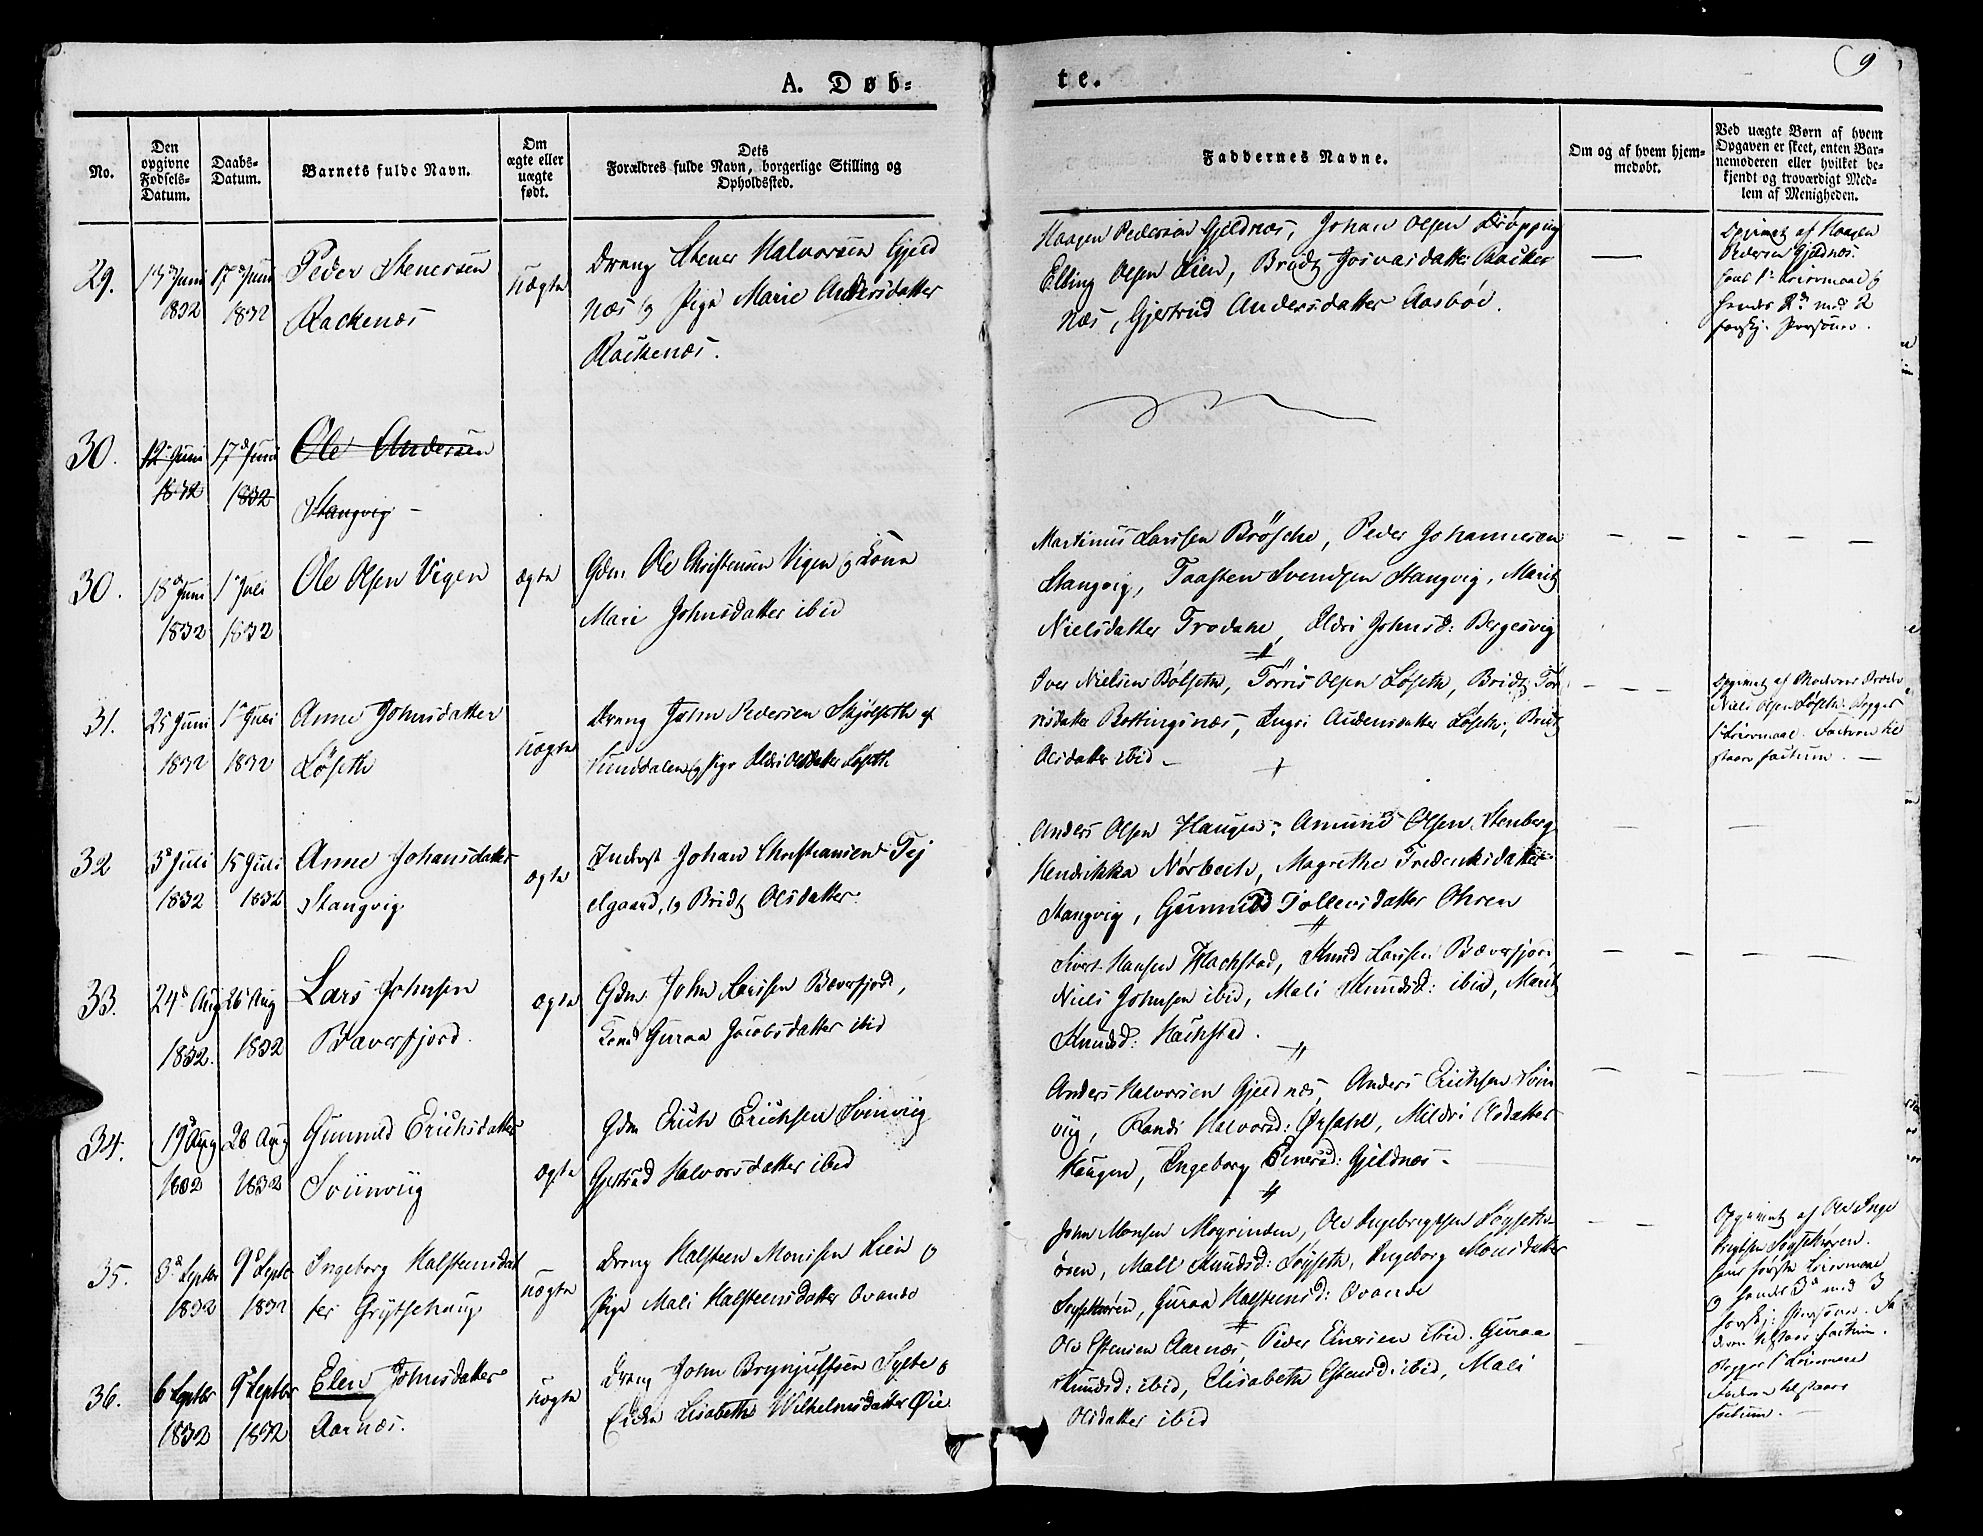 9
A. Døb-
te.
No.
Den opgivne Fødsels-Datum.
Daabs-Datum.
Barnets fulde Navn.
Om ægte eller uægte født.
Dets Forældres fulde Navn, borgerlige Stilling og Opholdssted.
Faddernes Navne.
Om og af hvem hjem-
medøbt.
Ved uægte Børn af hvem
Opgaven er skeet, enten Bar-
nemoderen eller hvilket be-
kjendt og troværdigt Med-
lem af Menigheden.
29.
Juni 1832
17 Juni 1832
Peder Stenersen
Rackenæs
uægte
Drang Stener Halvorsen Gjeld
næs og Pige Marie Andersdatter
Rackenæs.
Haagen Pedersen Gjeldnæs, Johan Olsen
Elling Olsen Lien, Bridt
næs, Gjertrud Andersdatter Aasbøe.
Opgivet af Haagen
Pedersen Gjeldnæs.
1ste Leiermaal og
hendes 2det med 2
forskj. Personer.
30.
12 Juni 1832
17 Juni 1832
Ole Andersen
Stangvig
30.
18 Juni 1832
1 Juli 1832
Ole Olsen Vigen
ægte
Gdm. Ole Christensen Vigen og Kone
Mari Johnsdatter ibid
Martinus Larssen Brøsche, Peder Johannesen
Stangvig, Taasten Svendsen Stangvig, Marit
Nielsdatter Trodahl, Eldri Johnsd: Bergesvig
31.
25 Juni 1832
1 Juli 1832
Anne Johnsdatter
Løseth
uægte
Drang John Pedersen Skjølseth af
Sunddalen og Pige Eldri Olsdatter Løseth
Iver Nielsen Bølseth, Tørris Olsen Løseth, Bridt Tør
risdatter Bottingsnæs, Ingri Andersdatter Løseth, Bridt
Olsdatter ibid
Opgivet af Moderens Broder
Niels Olsen Løseth. Begges
1ste Leiermaal. Faderen til
staaer factum.
32
5 Juli 1832
15 Juli 1832
Anne Johansdatter
Stangvig
ægte
Inderst Johan Christiansen Tej
elgaard, og Bridt Olsdatter
Anders Olsen Haugen, Amund Olsen Stenberg
Hendrikka Nørbech, Magrethe Frederiksdatter
Stangvig, Gunnild Tollevsdatter Ohren
33.
24 Aug 1832.
26 Aug 1832
Lars Johnsen
Bæverfjord.
ægte
Gdm. John Larsen Bæverfjord,
Kone Guraa Jacobsdatter ibid
Sivert Hansen Hackstad, Knud Larsen Bæverfjord
Niels Johnsen ibid, Mali Knudsd: ibid, Marit
Knudsd: Hackstad.
34.
19 Aug 1832
26 Aug 1832
Gunnild Erichsdatter
Sviinviig
ægte
Gdm Erich Erichsen Svinviig
Gjertrud Halvorsdatter ibid
Anders Halvorsen Gjeldnæs, Anders Erichsen Svin
viig, Randi Halvorsd: Ørsahl, Mildri Olsdatter
Haugen, Ingeborg Einersd: Gjeldnæs
35.
3 Septbr 1832
9 Septbr 1832
Ingeborg Halsteensdat
ter Grytsehaug
uægte
Drang Halsteen Monsen Lien og
Pige Mali Halsteensdatter Qvande
John Monsen Mogrinden, Ole Ingebrigtsen Søyseth-
ören, Mali Knudsd: Søyseth, Ingeborg Monsdatter
Søysethören, Guraa Halsteensd: Qvande
Opgivet af Ole Inge
brigtsen Søysethören.
hans første Leiermaal
og hendes 3de med 3
forskj: Personer. Fa
deren tilstaaer factum.
36.
6 Septbr 1832
9 Septbr 1832
Elen Johnsdatter
Aarnæs.
uægte
Drang John Brynjulfsen Sylte og
Enken Lisabeth Wilhelmsdatter Øie
Ole Estensen Aarnæs, Peder Einersen ibid. Guraa
Knudsd: ibid, Elisabeth Estensd: ibid, Mali
Olsdatter ibid
Begges 1ste Leiermaal
Faderen tilstaaer
factum.